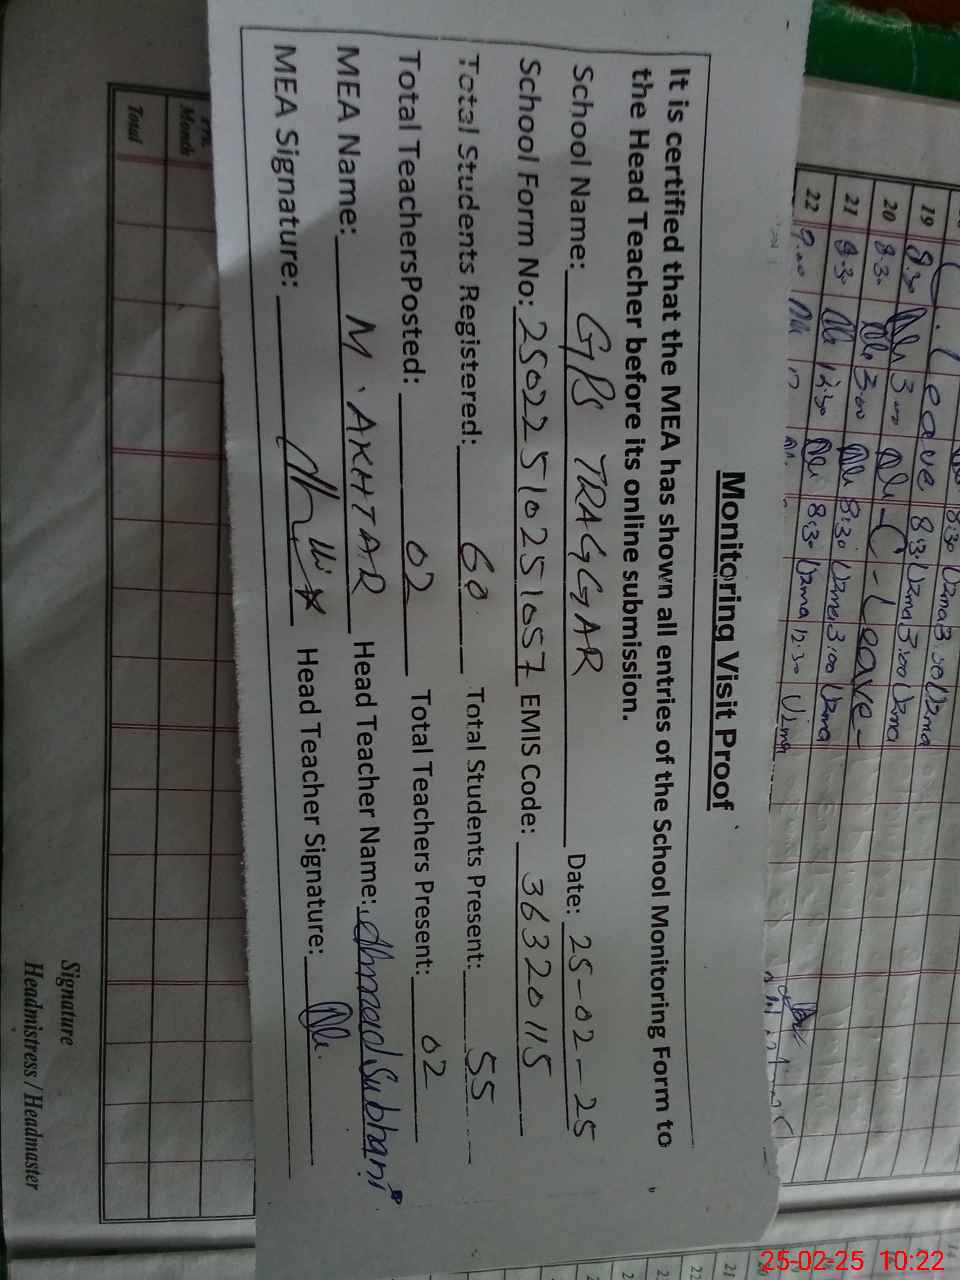 Monitoring Visit Proof
It is certified that the MEA has shown all entries of the School Monitoring Form to
the Head Teacher before its online submission.
School Name: GPS TRAGGAR Date: 25-02-25
School Form No: 250225102551057 EMIS Code: 36320115
Total Students Registered: 60 Total Students Present: 55
Total TeachersPosted: 02 Total Teachers Present: 02
MEA Name: M. AKHTAR Head Teacher Name: Ahmad Subhani
MEA Signature: Head Teacher Signature:
19 8.30 3.00 8:30 Uzma 3:00 Uzma
20 8.30 3.00 C-Leave-
21 8.30 12:30 8:30 Uzma 3:00 Uzma
22 9.00 8:30 Uzma 12:30 Uzma
Month
Total
Signature
Headmistress / Headmaster
21
22
25-02-25 10:22